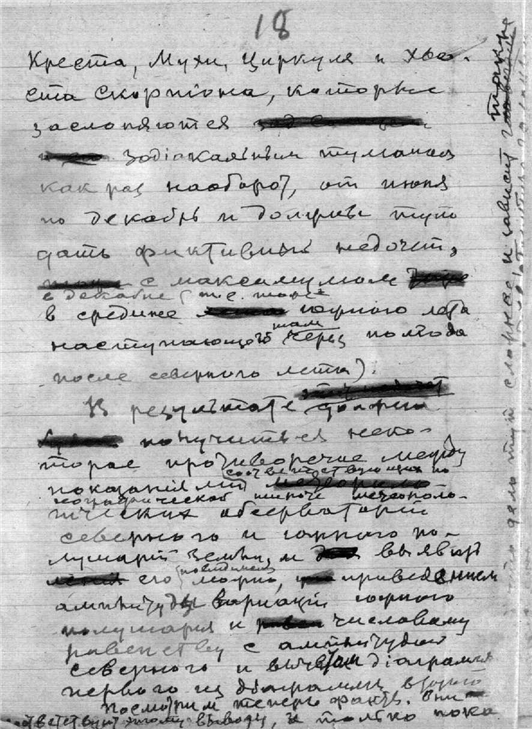 18
Креста, Мухи, Циркуля и хво-
ста Скорпиона, которые
заслоняются
зодіакальным туманом
как раз наоборот, от июня
по декабрь и должны тут
дать фиктивный недочет,
с максимумом
в декабре (т. е. тоже
в средине южного лета
наступающего там через полгода
после северного лета).
В результате должно
получиться неко-
торое противоречие между
показаніями соответствующих по
географической широте метеороло-
гических обсерваторій
северного и южного по-
лушарій Земли, и выявить
его можно, приведением
амплитуды варіаціи южного
полушария к числовому
равенству с амплитудой
северного и вычетом діаграммы
первого из діаграммы второго
Посмотрим теперь факты. Они
ответствуют этому выводу, и только пока
дело тут сложнее и зависит также